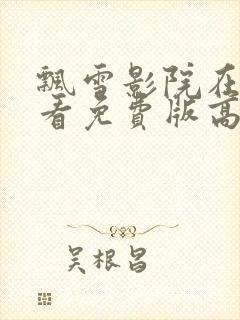 飘雪影院在
看免费版高
吴根昌